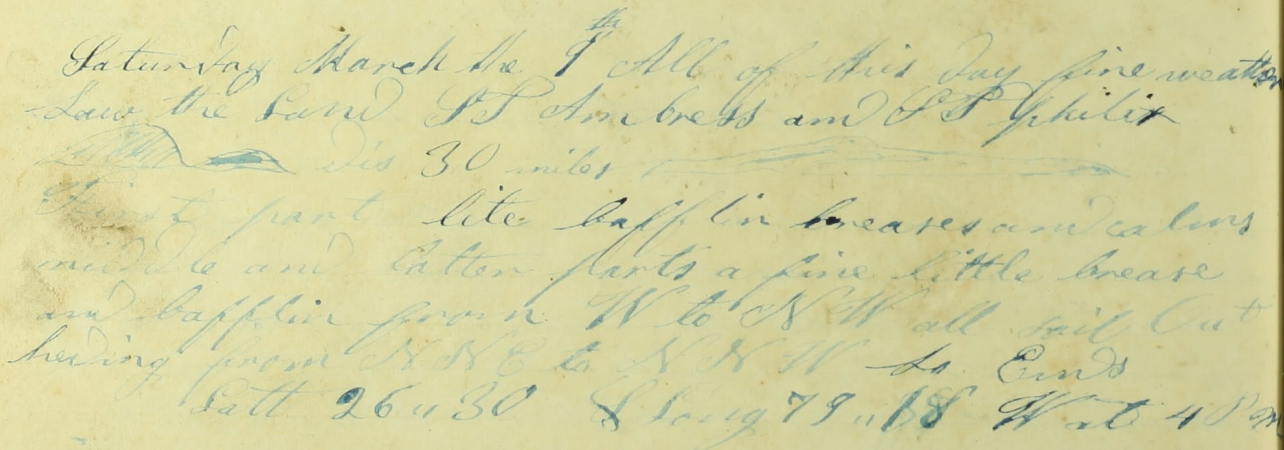 Saturday March the 9th All of this day fine weather
Saw the Land ST Ambress and ST Philix
Dis 30 miles
First part lite bafflin breases and calms
middle and latter parts a fine little brease
and bafflin from W to NW all sail Out
heding from NNE to NNW So Ends
Latt 26 " 30 S Long 79 " 18 W at 4 Pm